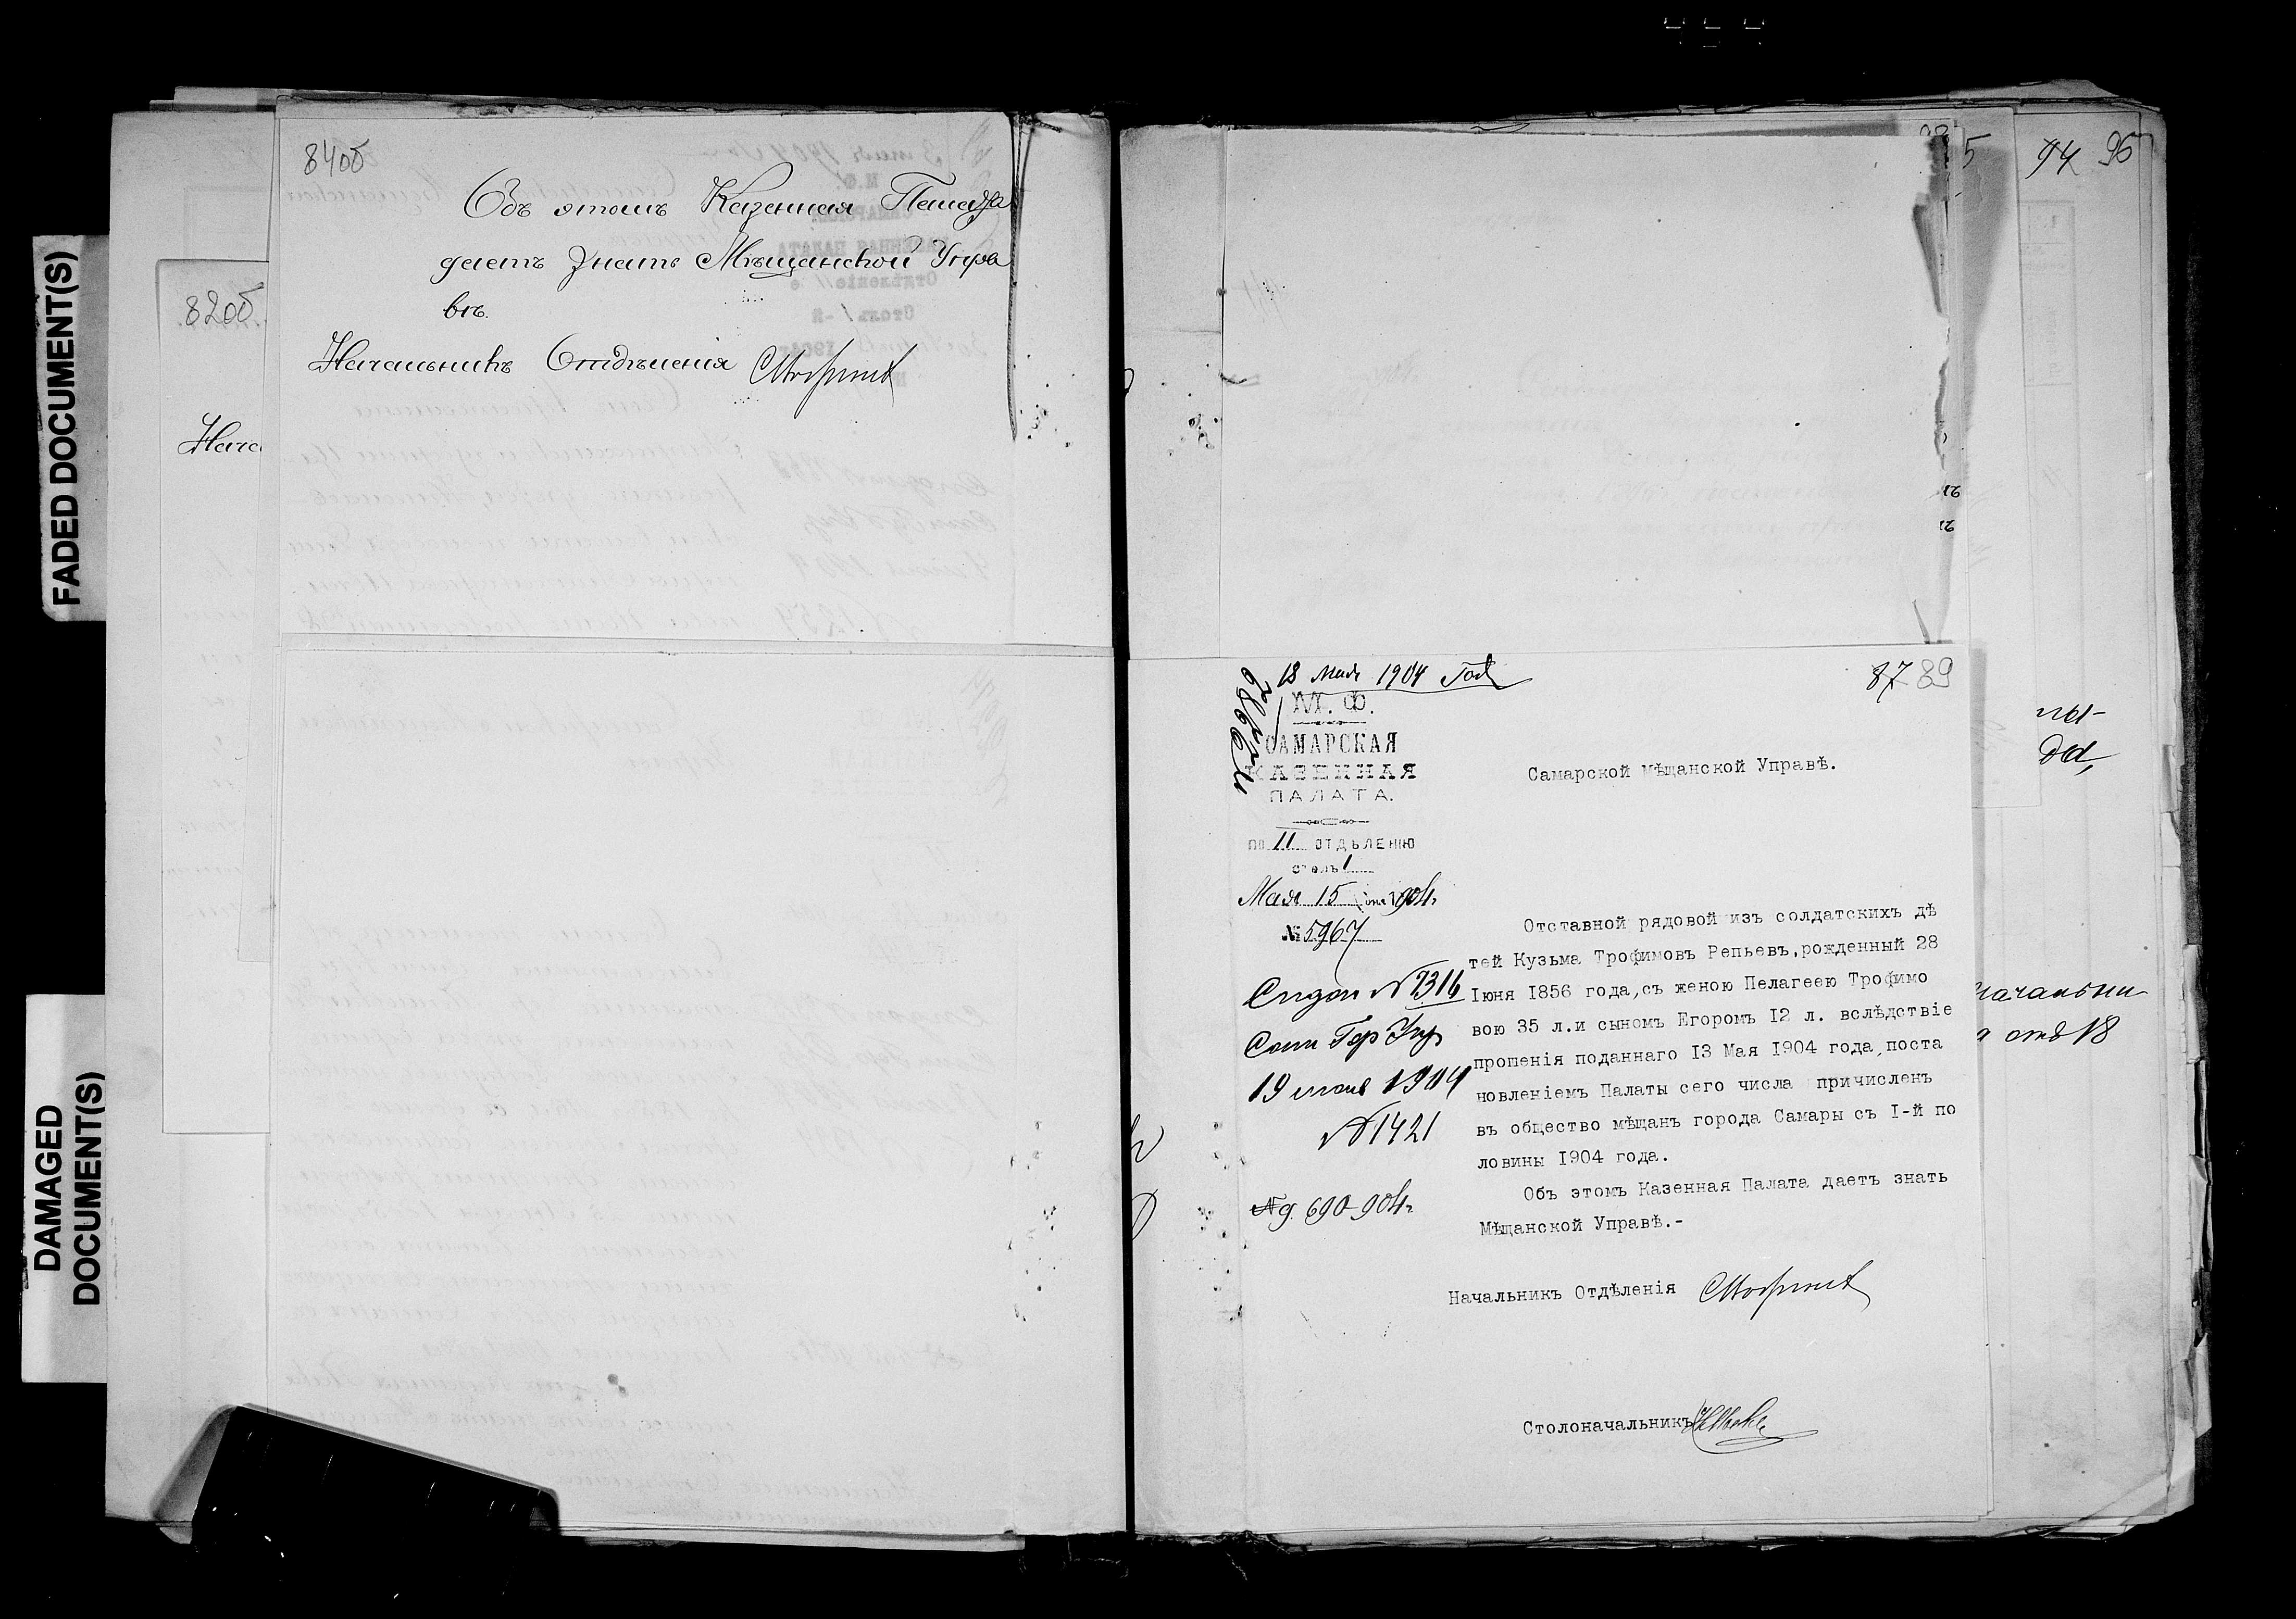 FADED DOCUMENT(S)
DAMAGED
DOCUMENT(S)
84об
Объ этомъ Казенная Палата
даетъ знать Мѣщанской Упра
вѣ.
Начальникъ Отдѣленія
82об.
Нача
5
94 96
87 89
18 Мая 1904 Года
М. Ф.
САМАРСКАЯ
КАЗЕННАЯ
ПАЛАТА.
по II ОТДѢЛЕНІЮ
столъ 1
Мая 15 дня 1904г.
№ 5967
№ 1421
19 1904
№ д. 690-904г.
Самарской Мѣщанской Управѣ.
Отставной рядовой изъ солдатскихъ дѣ
тей Кузьма Трофимовъ Репьевъ,рожденный 28
Iюня I856 года,съ женою Пелагеею Трофимо
вою 35 л.и сыномъ Егоромъ I2 л. вслѣдствіе
прошенія поданнаго I3 Мая I904 года,поста
новленіемъ Палаты сего числа причисленъ
въ общество мѣщанъ города Самары съ I-й по
ловины I904 года.
Объ этомъ Казенная Палата даетъ знать
Мѣщанской Управѣ.-
Начальникъ Отдѣленія
Столоначальникъ
ны-
да,